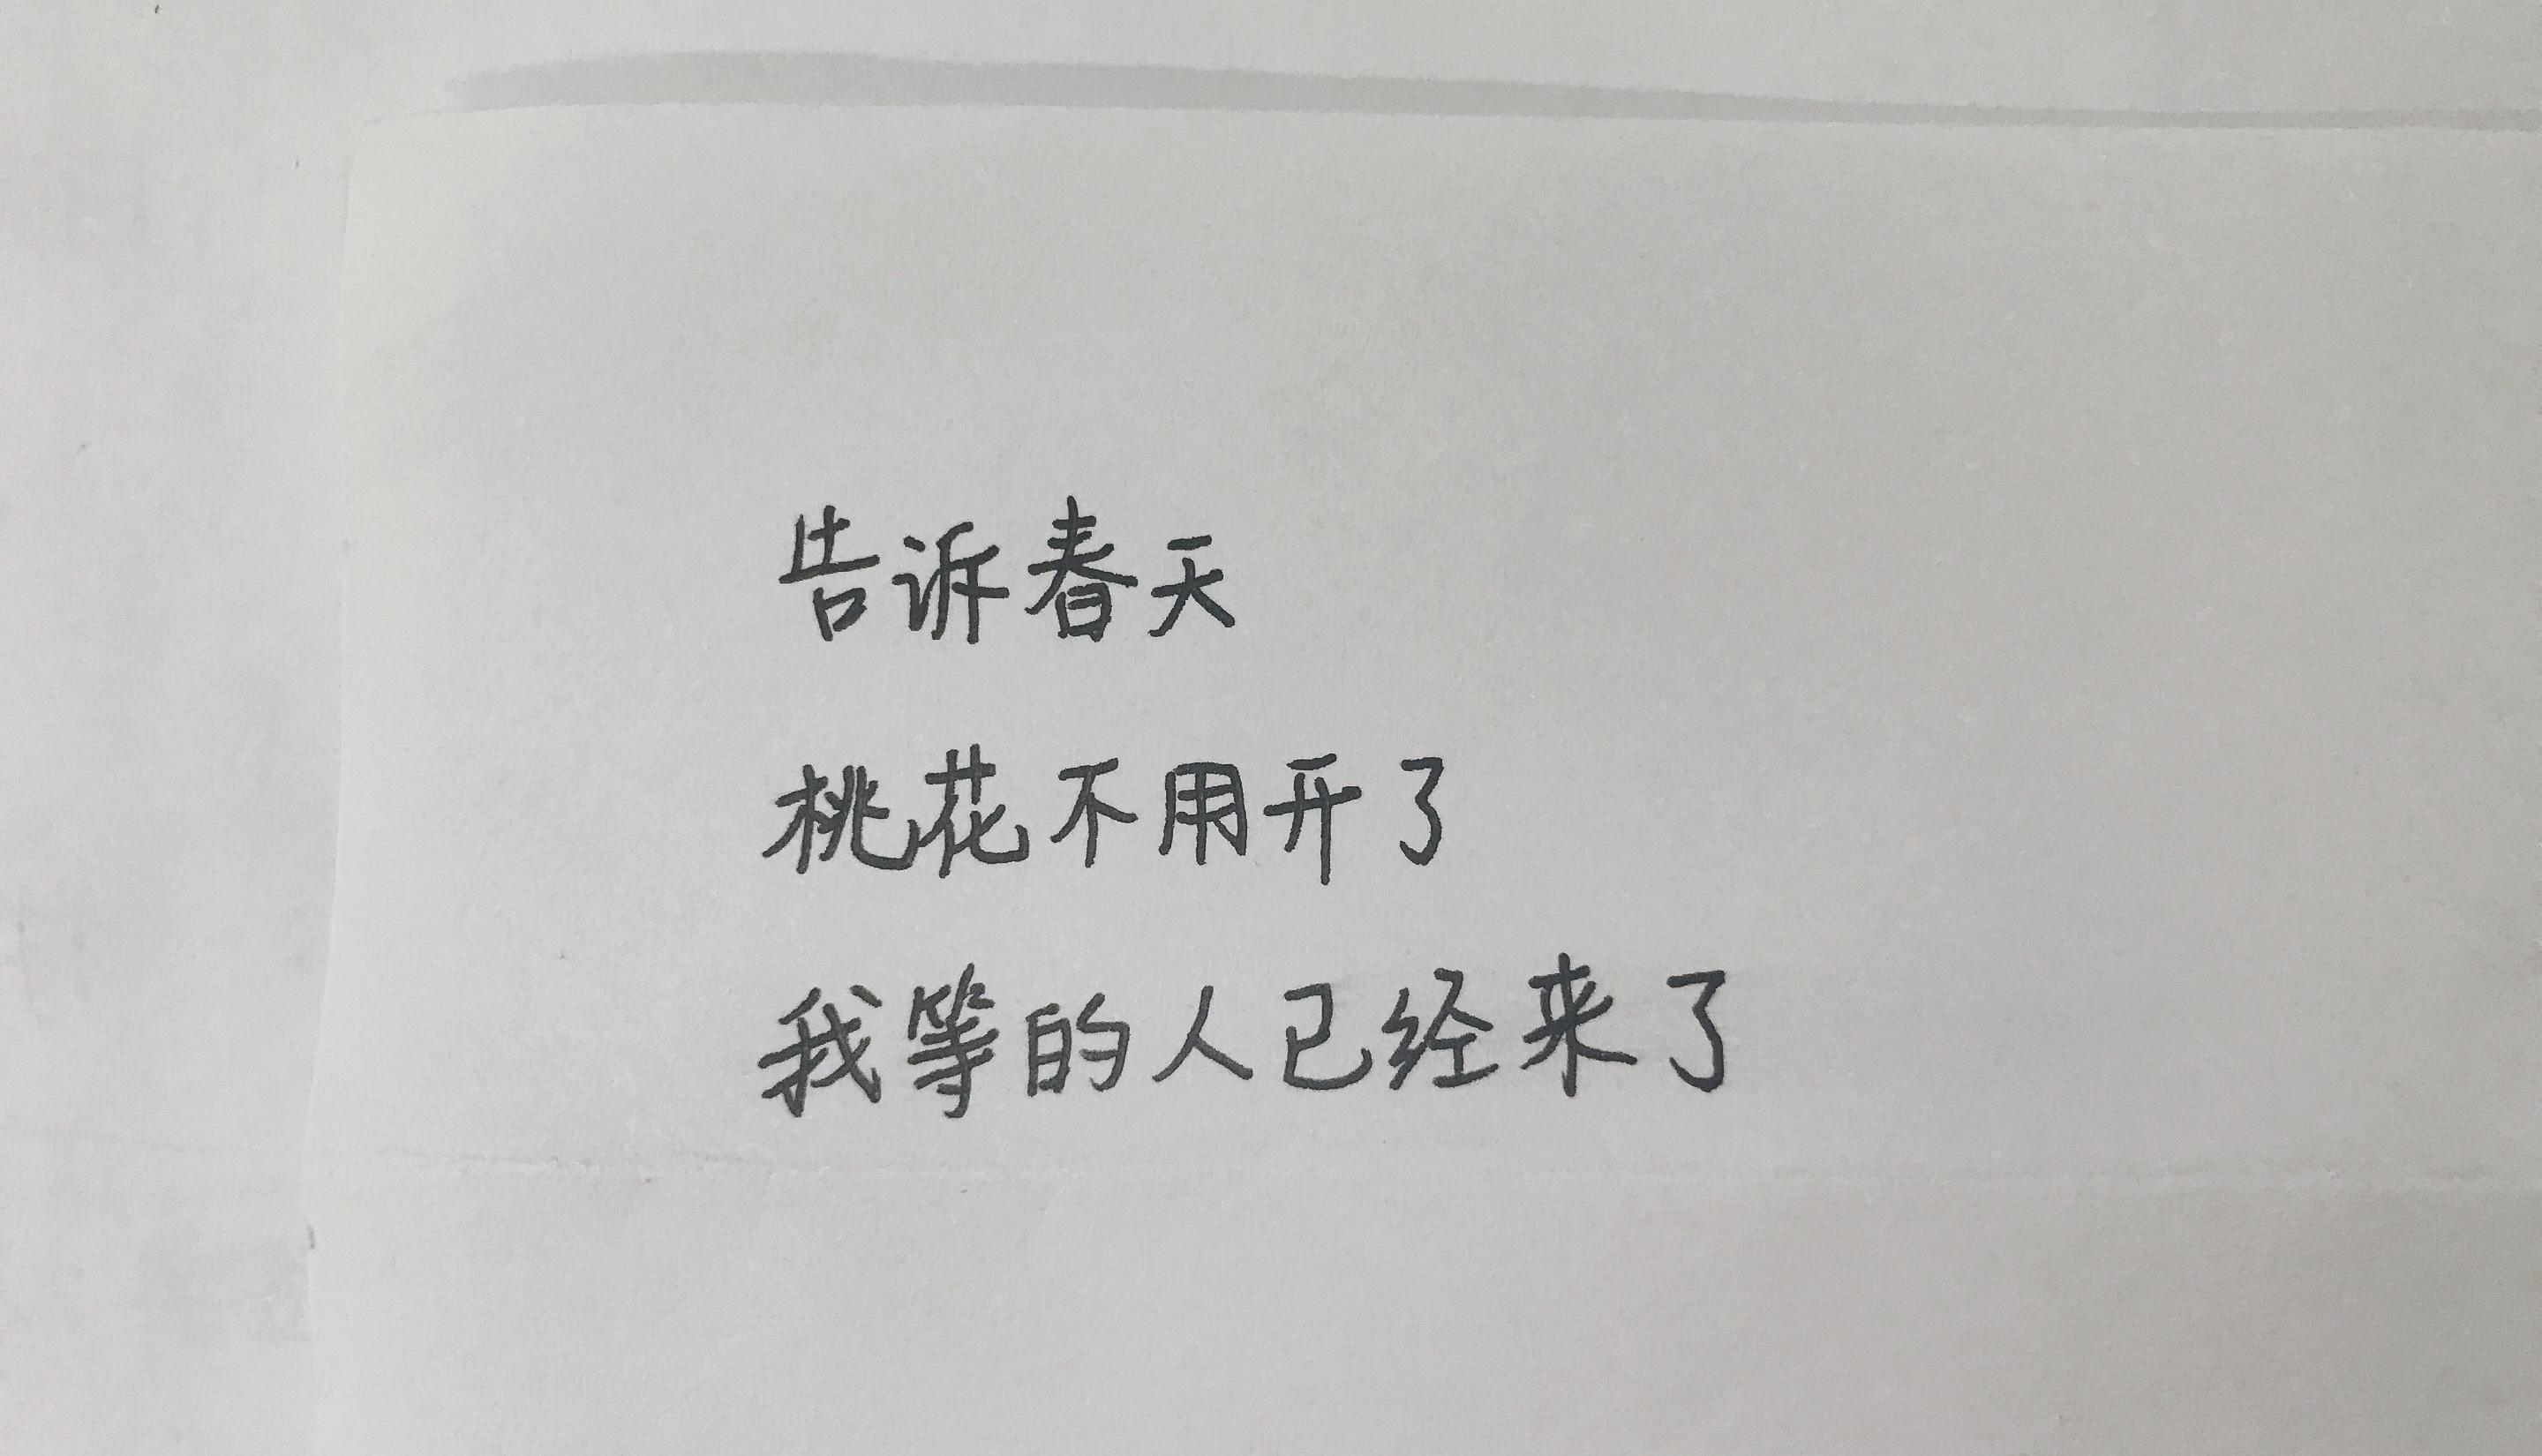 告诉春天
桃花不用开了
我等的人已经来了